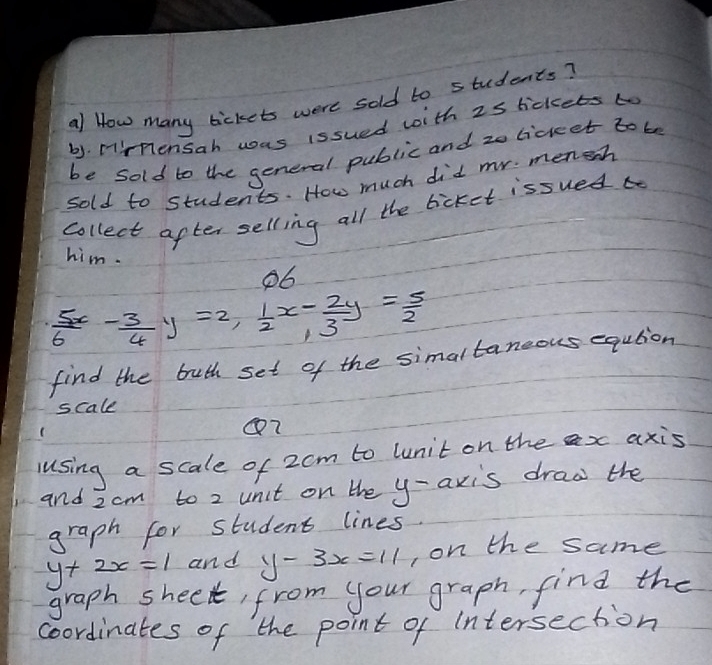 a) How many tickets were sold to students?
b). Mr Mensah was issued with 25 tickets to
be sold to the general public and 20 ticket to be
sold to students. How much did mr. mensah
Collect after selling all the ticket issued to
him.
Q6
5x/6 - 3/4 y = 2, 1/2 x - 2y/3 = 5/2
find the truth set of the simaltaneous eqution
scale
Q7
using a scale of 2cm to 1unit on the x axis
and 2cm to 2 unit on the y-axis draw the
graph for student lines.
y + 2x = 1 and y - 3x = 11, on the same
graph sheet, from your graph, find the
Coordinates of the point of intersection